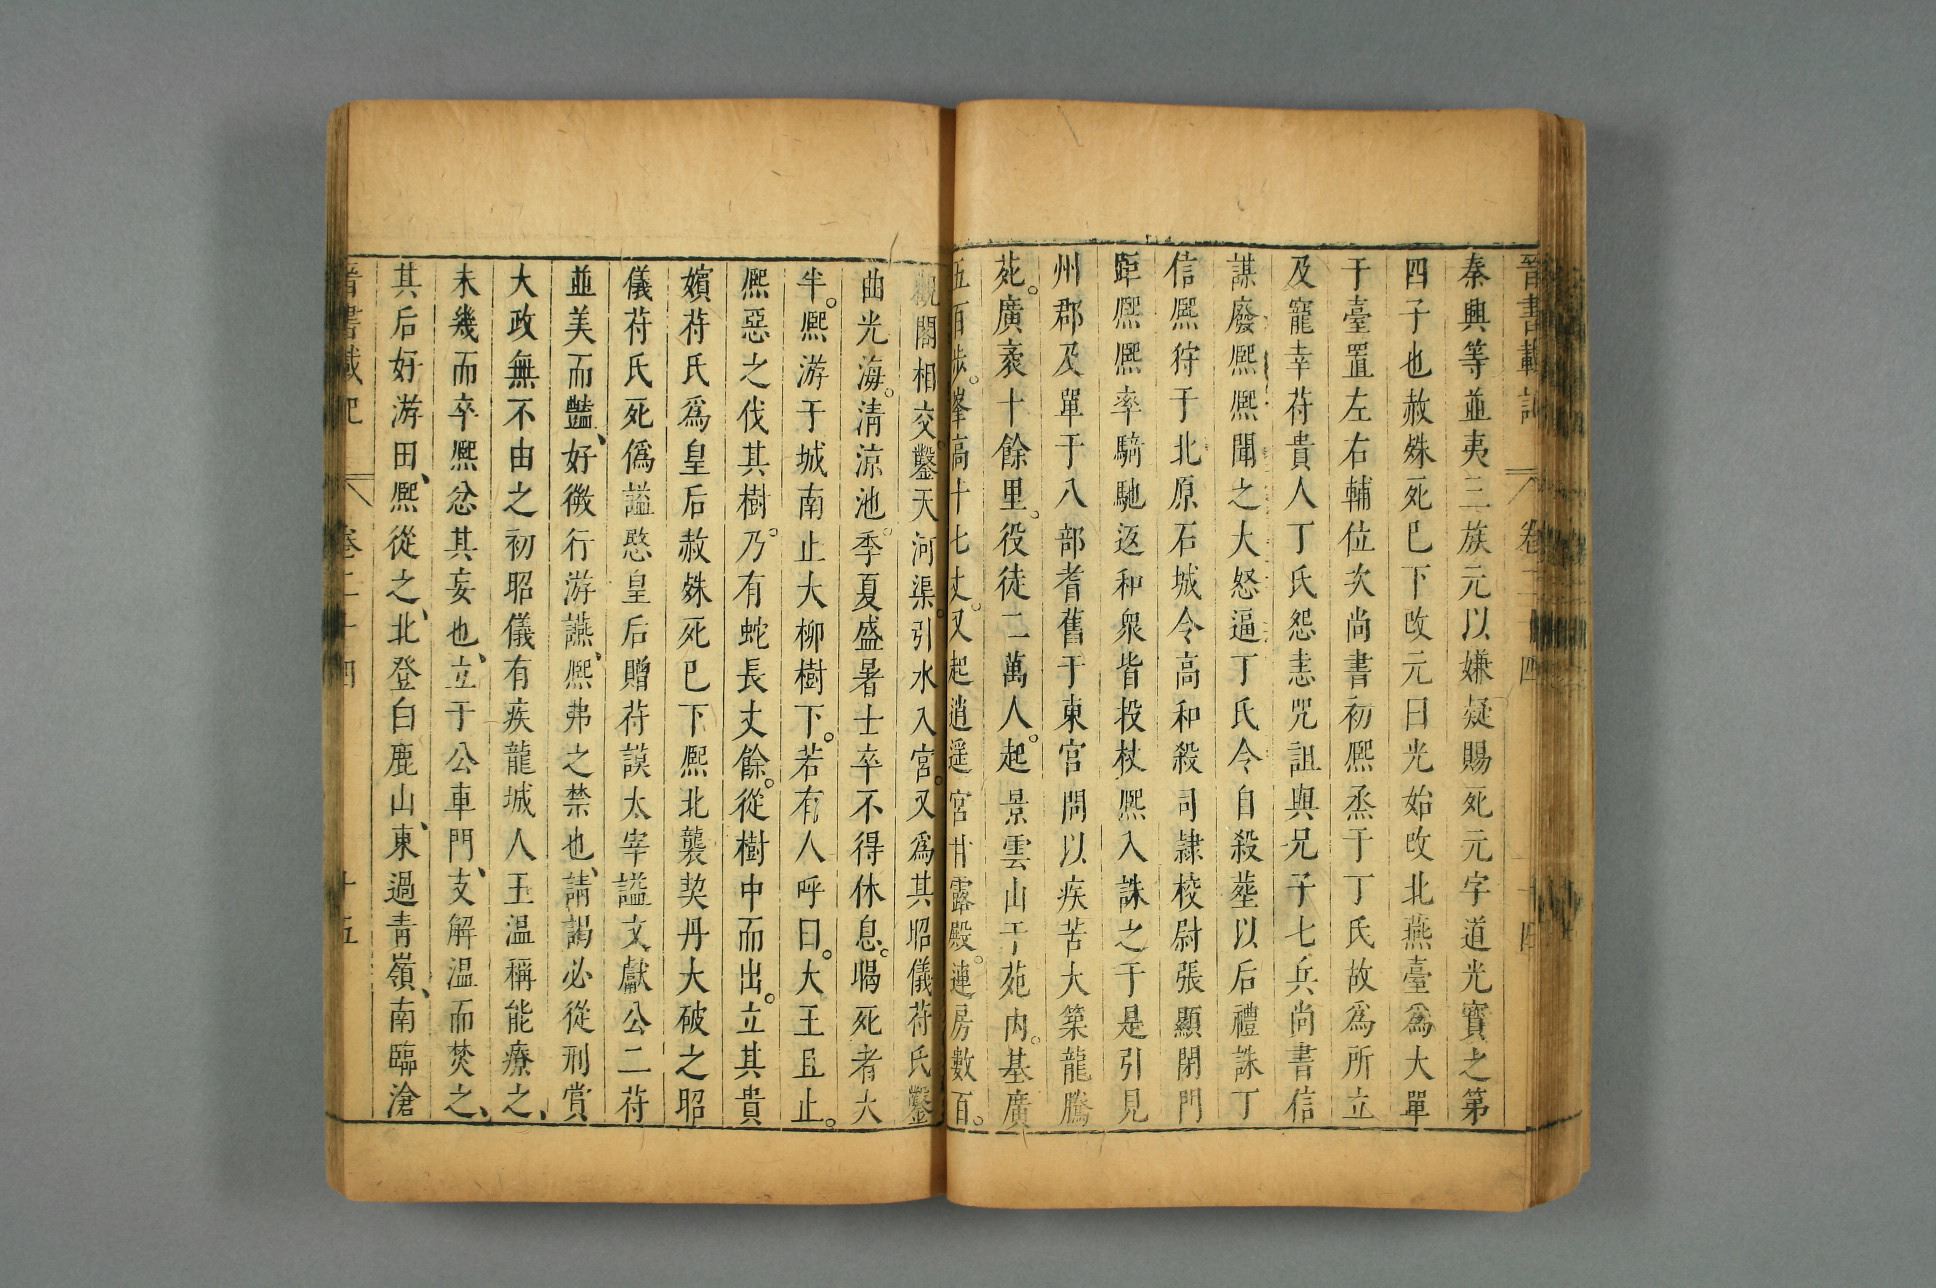 晉書載記 卷二十四 十四
秦興等並夷三族元以嫌疑賜死元字道光寶之第
四子也赦殊死已下改元曰光始改北燕臺爲大單
于臺置左右輔位次尚書初熈烝于丁氏故爲所立
及寵幸苻貴人丁氏怨恚咒詛與兄子七兵尚書信
謀廢熈熈聞之大怒逼丁氏令自殺塟以后禮誅丁
信熈狩于北原石城令高和殺司隷校尉張顯閉門
距熈熈率騎馳返和衆皆投杖熈入誅之于是引見
州郡及單于八部耆舊于東宮問以疾苦大築龍騰
苑。廣袤十餘里。役徒二萬人。起景雲山于苑内。基廣
五百步。峯高十七丈。又起逍遥宮甘露殿。連房數百。
觀閣相交。鑿天河渠。引水入宮。又爲其昭儀苻氏鑿
曲光海。清涼池。季夏盛暑士卒不得休息。暍死者太
半。熈游于城南止大柳樹下。若有人呼曰。大王且止。
熈惡之伐其樹。乃有蛇長丈餘。從樹中而出。立其貴
嬪苻氏爲皇后赦殊死已下熈北襲契丹大破之昭
儀苻氏死僞謚愍皇后贈苻謨太宰謚文獻公二苻
並美而豔、好微行游讌、熈弗之禁也、請謁必從刑賞
大政無不由之初昭儀有疾龍城人王溫稱能療之、
未幾而卒熈忿其妄也、立于公車門、支解溫而焚之、
其后好游田、熈從之、北登白鹿山、東過青嶺、南臨滄
晉書載記 卷二十四 十五